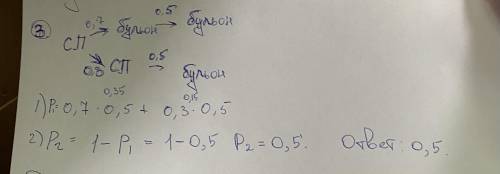 0,7 0,5
③ → бульон → бульон
СП
0,5
0,3 СП → бульон
0,35 0,15
1) P₁= 0,7 · 0,5 + 0,3 · 0,5
2) P₂ = 1 - P₁ = 1 - 0,5 P₂ = 0,5. Ответ: 0,5.